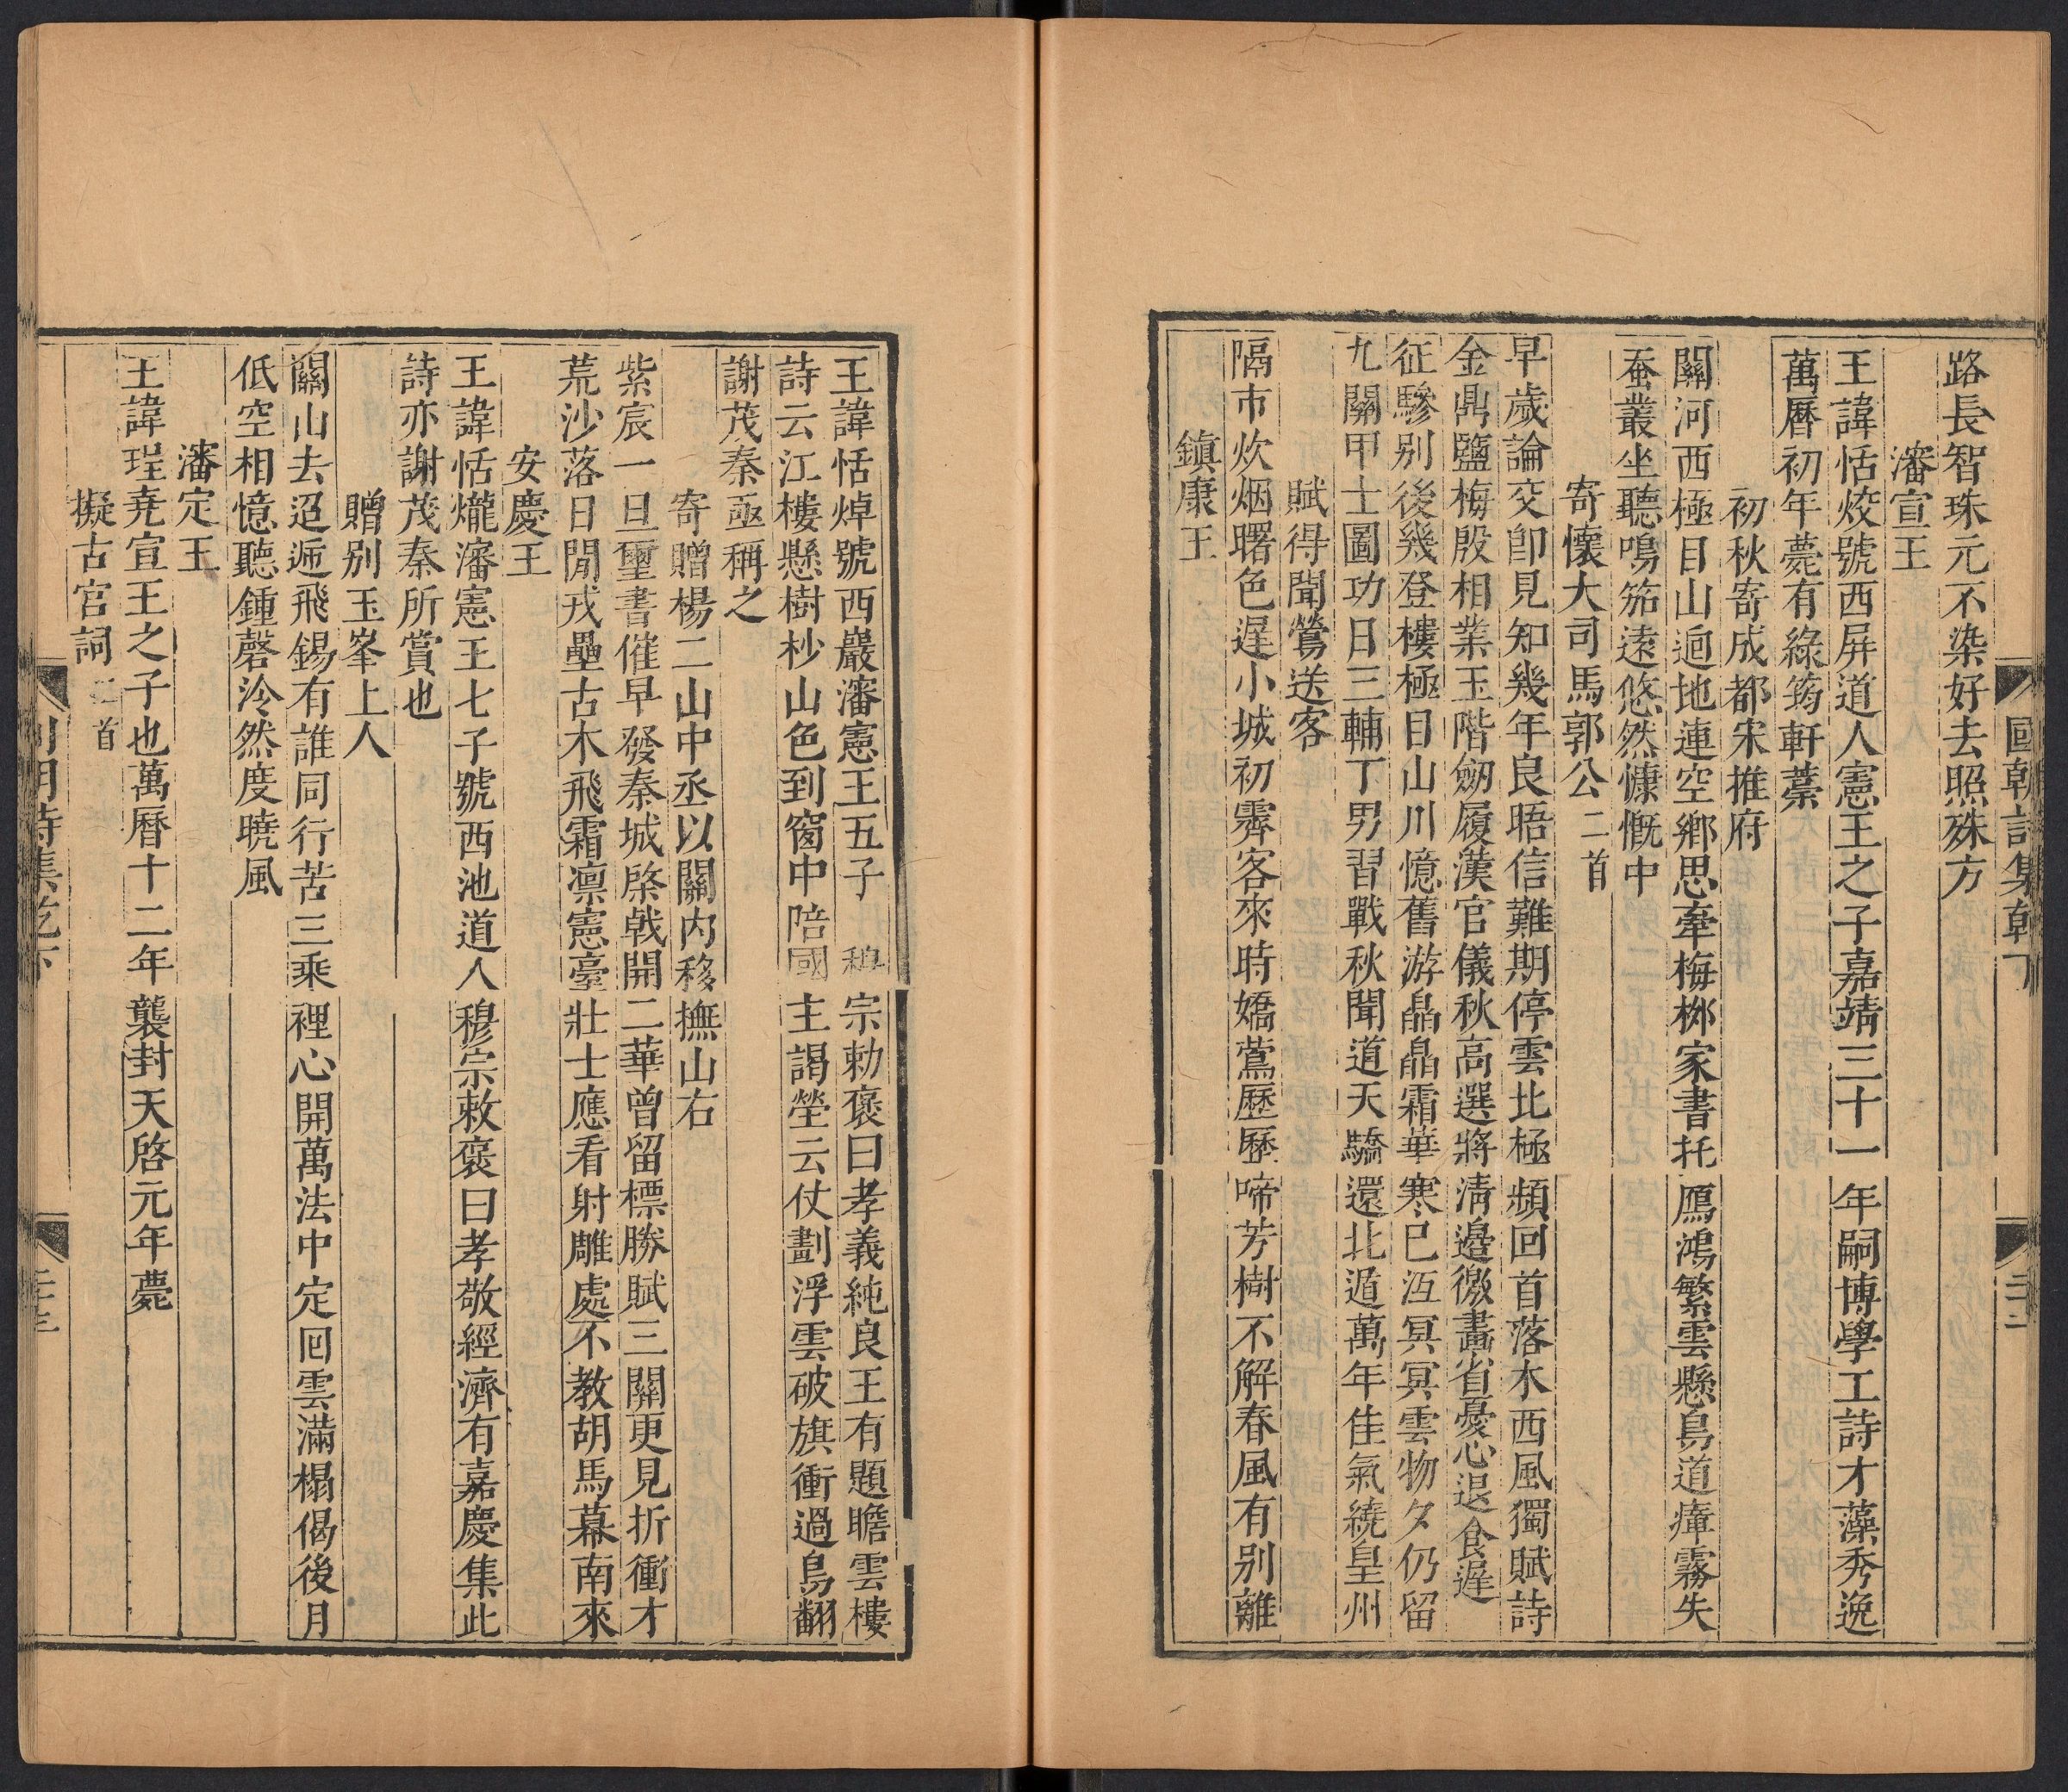 國朝詩集乾下
二十二
路長智珠元不染好去照殊方
瀋宣王
王諱恬烄號西屏道人憲王之子嘉靖三十一年嗣博學工詩才藻秀逸
萬曆初年薨有綠筠軒藁
初秋寄成都宋推府
關河西極目山逈地連空鄉思牽梅栁家書托鴈鴻繁雲懸鳥道瘴霧失
蚕叢坐聽鳴笳遠悠然慷慨中
寄懷大司馬郭公二首
早歲論交卽見知幾年良晤信難期停雲北極頻回首落木西風獨賦詩
金鼎鹽梅殷相業玉階劒履漢官儀秋高選將淸邊徼晝省憂心退食遲
征驂别後幾登樓極目山川憶舊游晶晶霜華寒已沍冥冥雲物夕仍留
九關甲士圖功日三輔丁男習戰秋聞道天驕還北遁萬年佳氣繞皇州
賦得聞鶯送客
隔市炊烟曙色遲小城初霽客來時嬌鶯歷歷啼芳樹不解春風有别離
鎮康王
王諱恬焯號西巖瀋憲王五子穆宗勅褒曰孝義純良王有題瞻雲樓
詩云江樓懸樹杪山色到窗中陪國主謁塋云仗劃浮雲破旗衝過鳥翻
謝茂秦亟稱之
寄贈楊二山中丞以關内移撫山右
紫宸一旦璽書催早發秦城棨戟開二華曾留標勝賦三關更見折衝才
荒沙落日閒戎壘古木飛霜凛憲臺壯士應看射雕處不教胡馬幕南來
安慶王
王諱恬爖瀋憲王七子號西池道人穆宗敕褒曰孝敬經濟有嘉慶集此
詩亦謝茂秦所賞也
贈别玉峯上人
關山去迢遞飛錫有誰同行苦三乘裡心開萬法中定回雲滿榻偈後月
低空相憶聽鍾磬泠然度曉風
瀋定王
王諱珵堯宣王之子也萬曆十二年襲封天啓元年薨
擬古宮詞二首
列朝詩集乾下
二十三